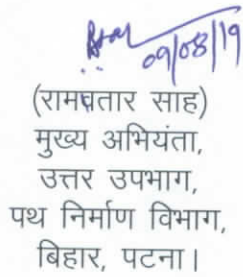 09/08/19
(रामवतार साह)
मुख्य अभियंता,
उत्तर उपभाग,
पथ निर्माण विभाग,
बिहार, पटना।